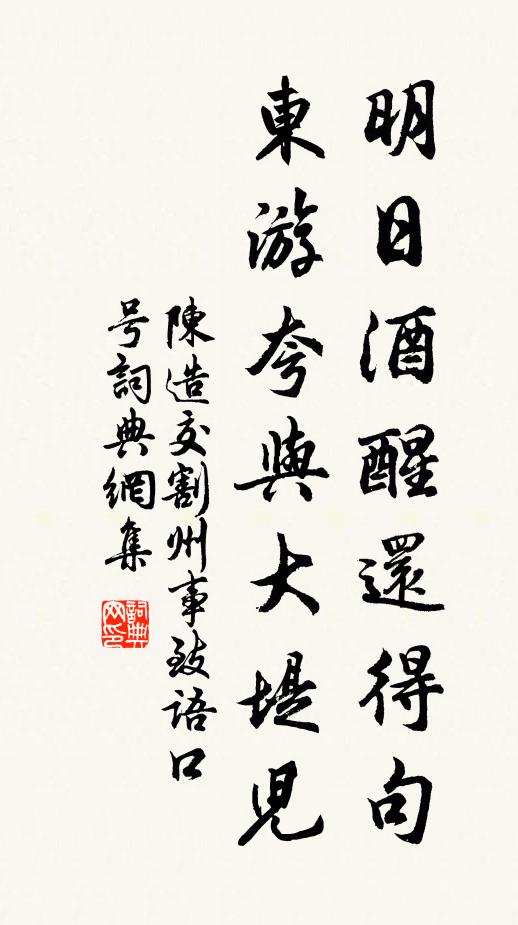 明日酒醒還得句
東游夸與大堤児
陳造交割州事致語口
号詞典網集
詞典网印